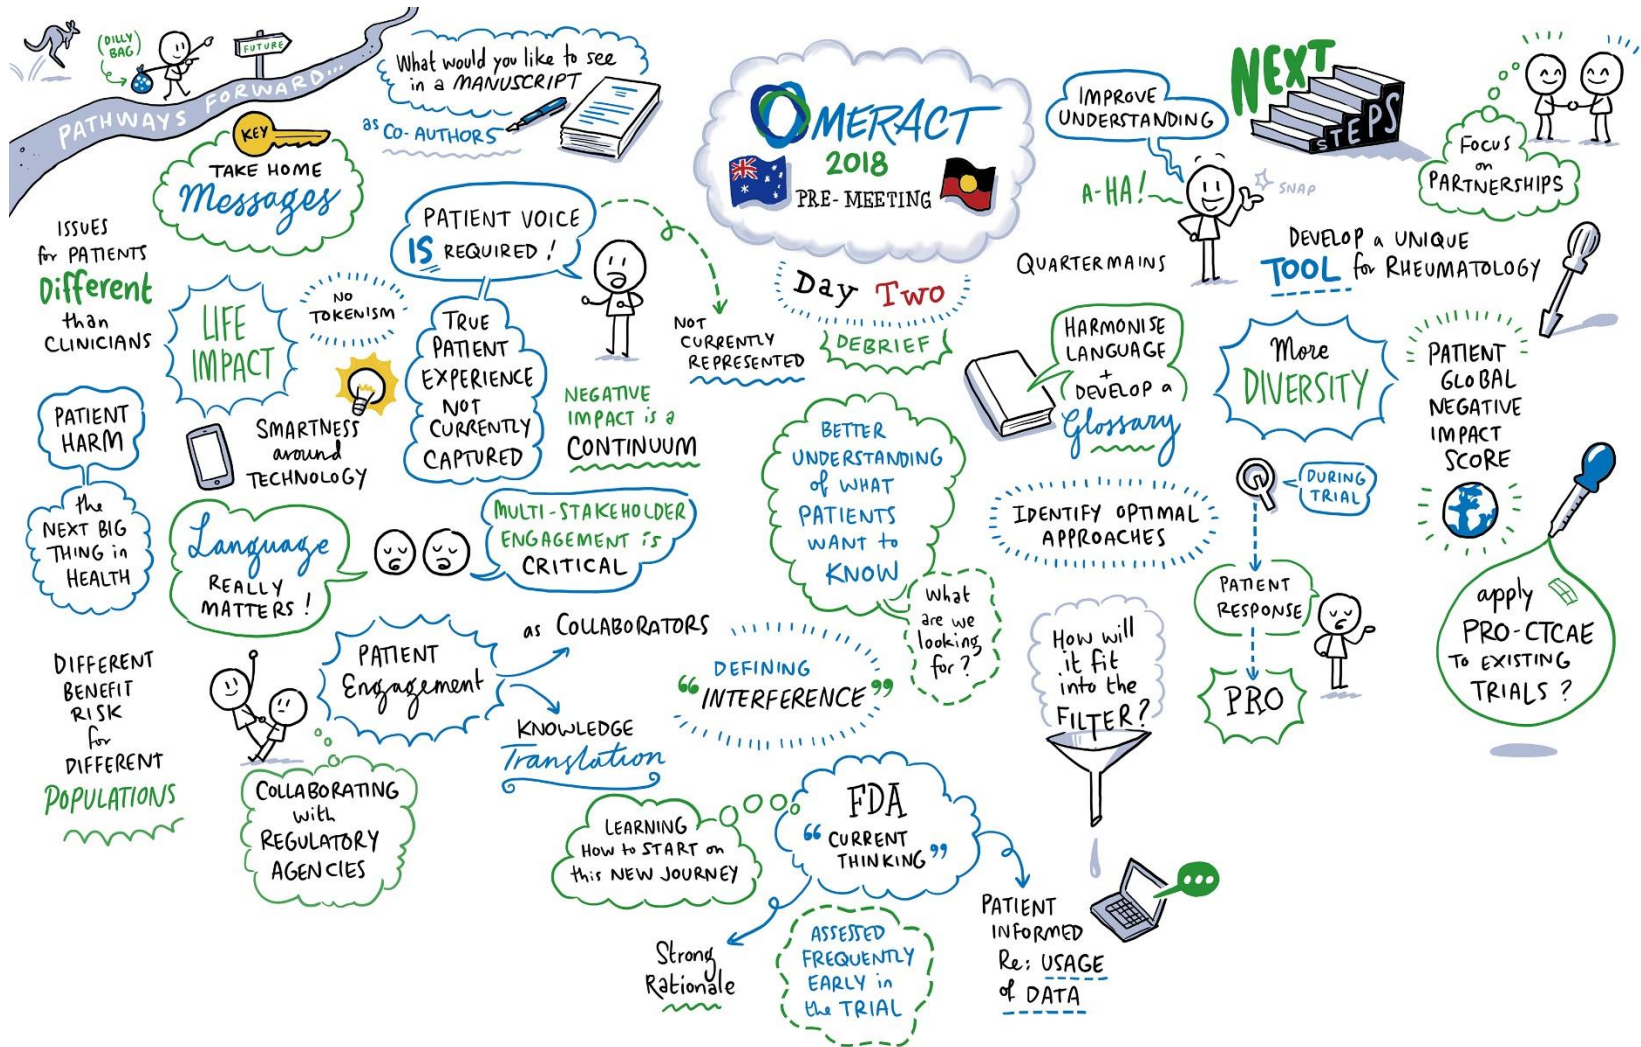 (DILLY
BAG)
FUTURE
PATHWAYS FORWARD...
What would you like to see
in a MANUSCRIPT
as CO-AUTHORS
KEY
TAKE HOME
Messages
OMERACT
2018
PRE-MEETING
Day Two
DEBRIEF
IMPROVE
UNDERSTANDING
A-HA!
SNAP
QUARTERMAINS
NEXT
STEPS
FOCUS
on
PARTNERSHIPS
ISSUES
for PATIENTS
Different
than
CLINICIANS
LIFE
IMPACT
NO
TOKENISM
PATIENT VOICE
IS REQUIRED!
TRUE
PATIENT
EXPERIENCE
NOT
CURRENTLY
CAPTURED
NOT
CURRENTLY
REPRESENTED
NEGATIVE
IMPACT is a
CONTINUUM
PATIENT
HARM
the
NEXT BIG
THING in
HEALTH
SMARTNESS
around
TECHNOLOGY
Language
REALLY
MATTERS!
MULTI-STAKEHOLDER
ENGAGEMENT is
CRITICAL
BETTER
UNDERSTANDING
of WHAT
PATIENTS
WANT to
KNOW
What
are we
looking
for?
HARMONISE
LANGUAGE
+
DEVELOP a
Glossary
DEVELOP a UNIQUE
TOOL for RHEUMATOLOGY
More
DIVERSITY
PATIENT
GLOBAL
NEGATIVE
IMPACT
SCORE
IDENTIFY OPTIMAL
APPROACHES
Q
DURING
TRIAL
PATIENT
RESPONSE
PRO
apply
PRO-CTCAE
TO EXISTING
TRIALS?
How will
it fit
into the
FILTER?
DIFFERENT
BENEFIT
RISK
for
DIFFERENT
POPULATIONS
PATIENT
Engagement
as COLLABORATORS
KNOWLEDGE
Translation
DEFINING
"INTERFERENCE"
COLLABORATING
with
REGULATORY
AGENCIES
LEARNING
HOW to START on
this NEW JOURNEY
FDA
"CURRENT
THINKING"
Strong
Rationale
ASSESSED
FREQUENTLY
EARLY in
the TRIAL
PATIENT
INFORMED
Re: USAGE
of DATA